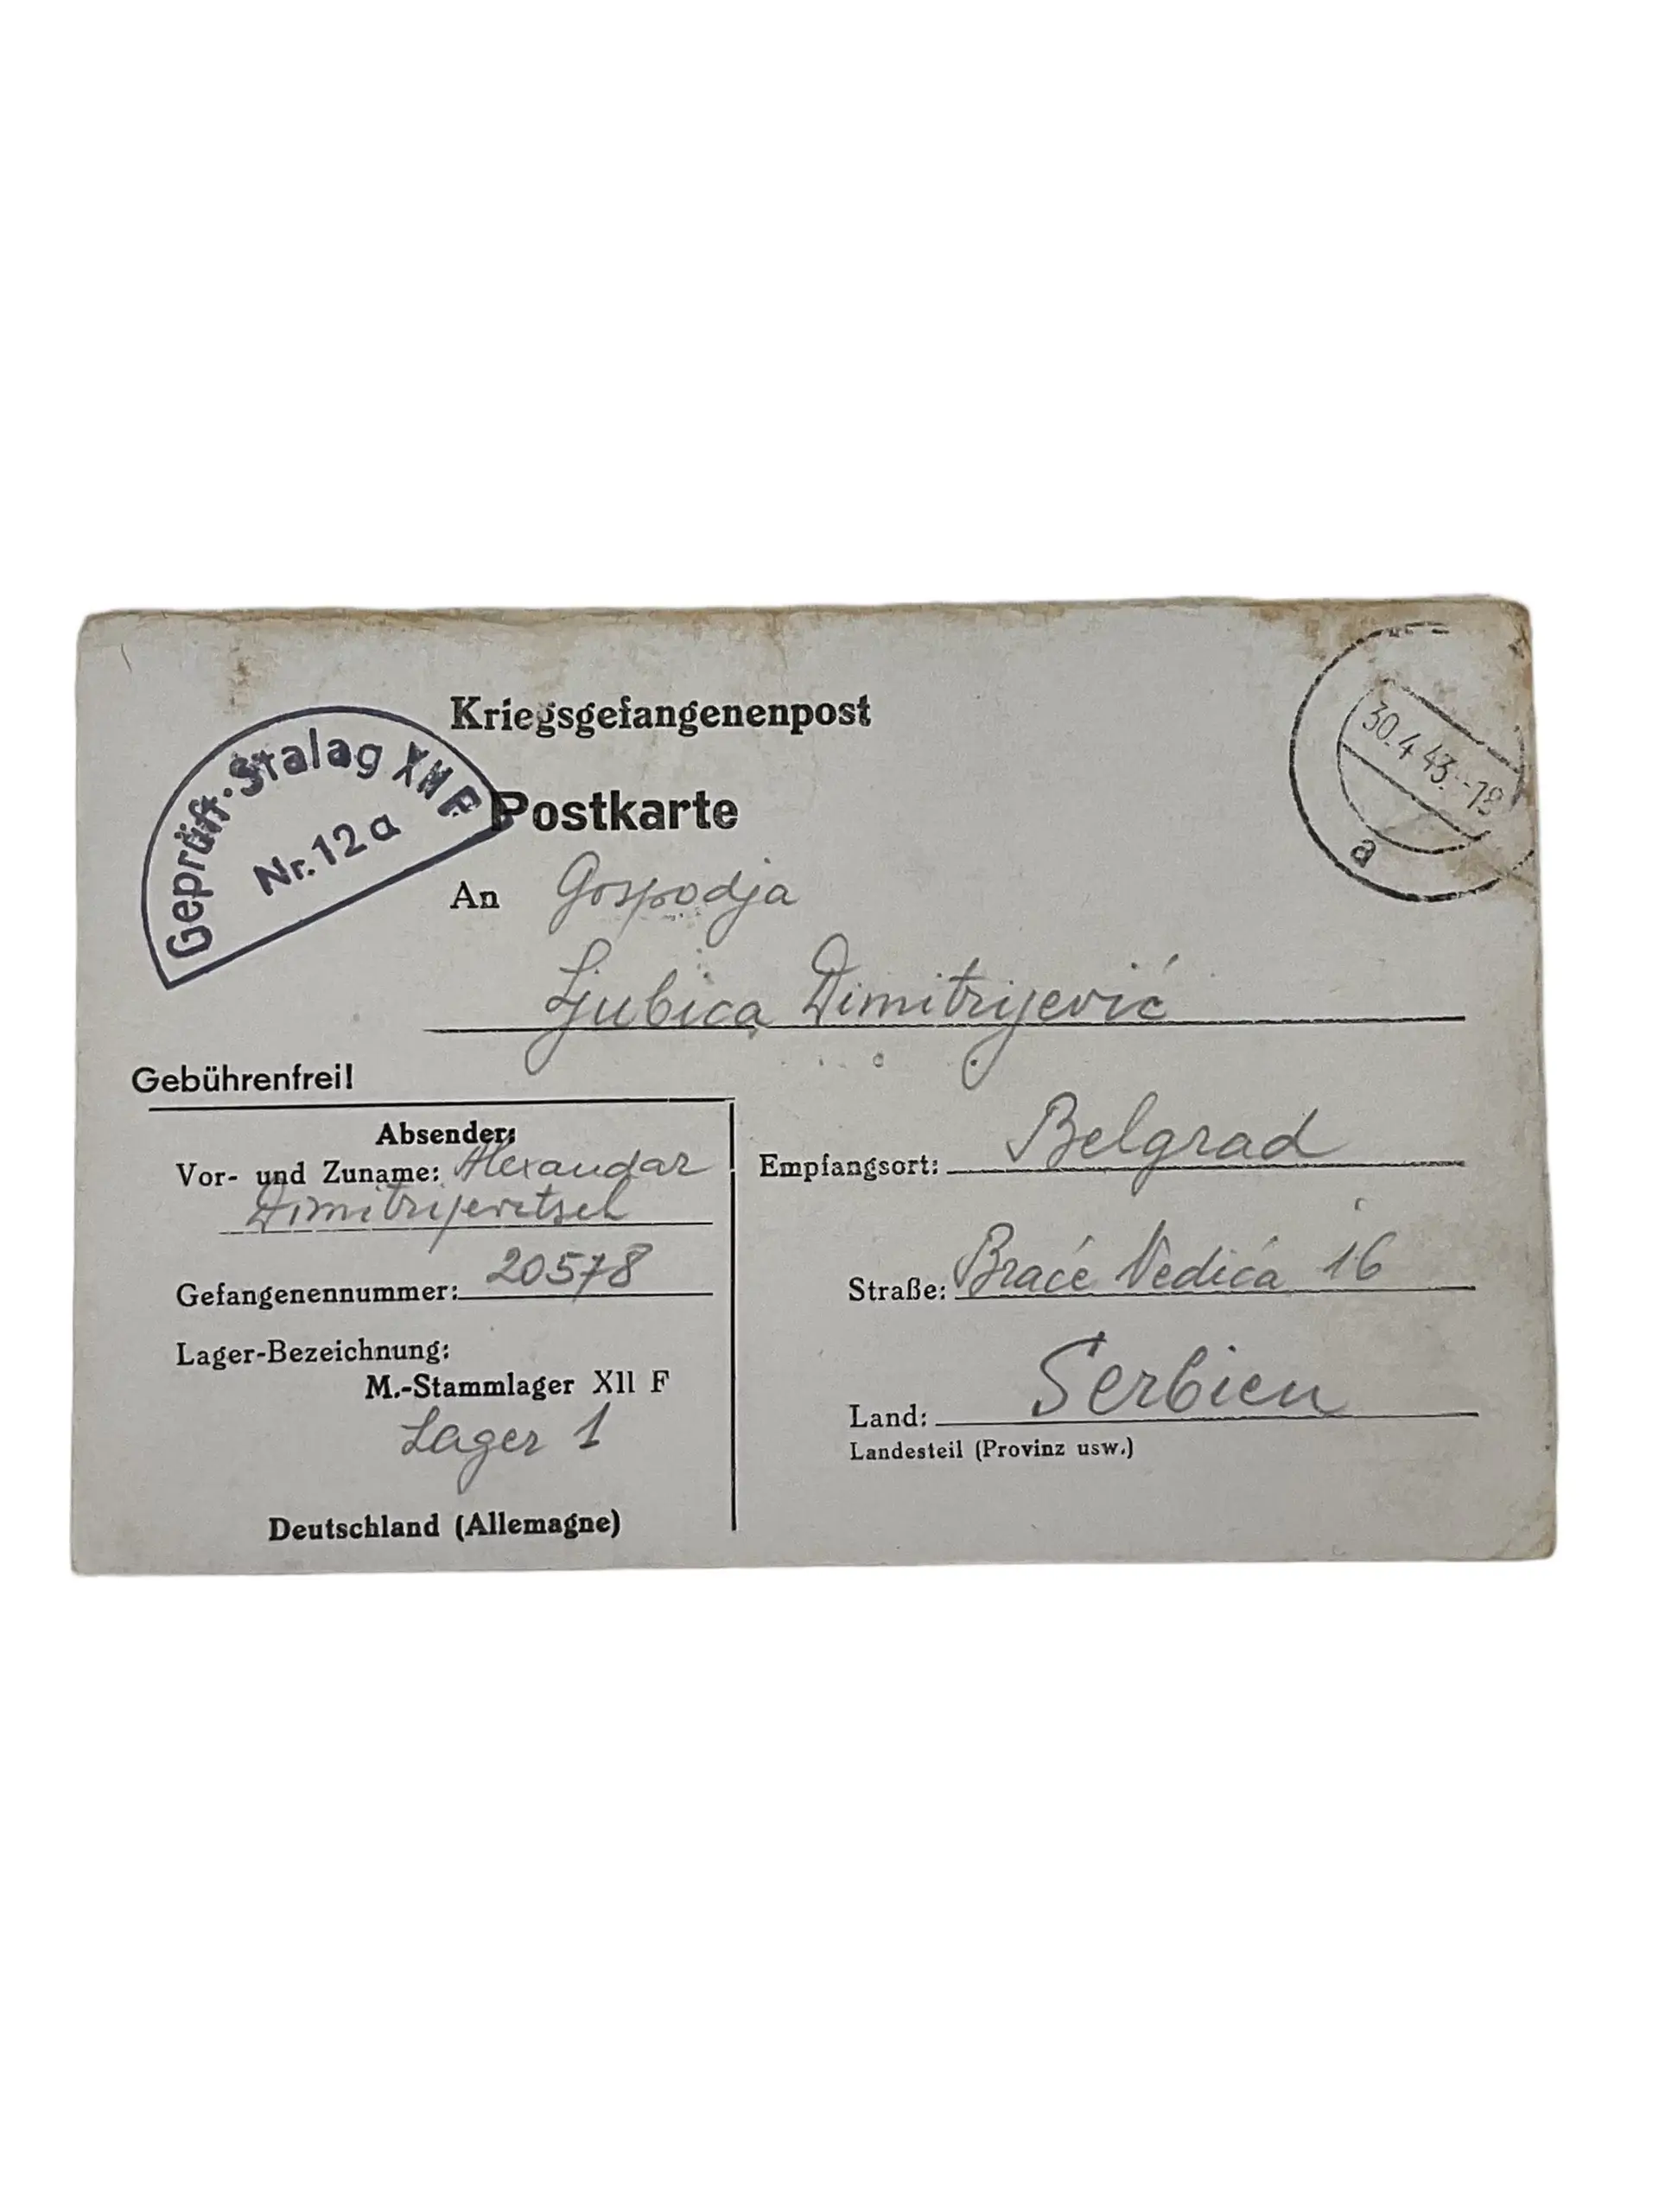 Kriegsgefangenenpost
Geprüft·Stalag XII F
Nr. 12 a
30.4.43.-18
a
Postkarte
An Gospodja
Ljubica Dimitrijević
Gebührenfrei!
Absender:
Vor- und Zuname: Alexandar
Dimitrijevitsch
Gefangenennummer: 20578
Lager-Bezeichnung:
M.-Stammlager XII F
Lager 1
Deutschland (Allemagne)
Empfangsort: Belgrad
Straße: Braće Nedića 16
Land: Serbien
Landesteil (Provinz usw.)